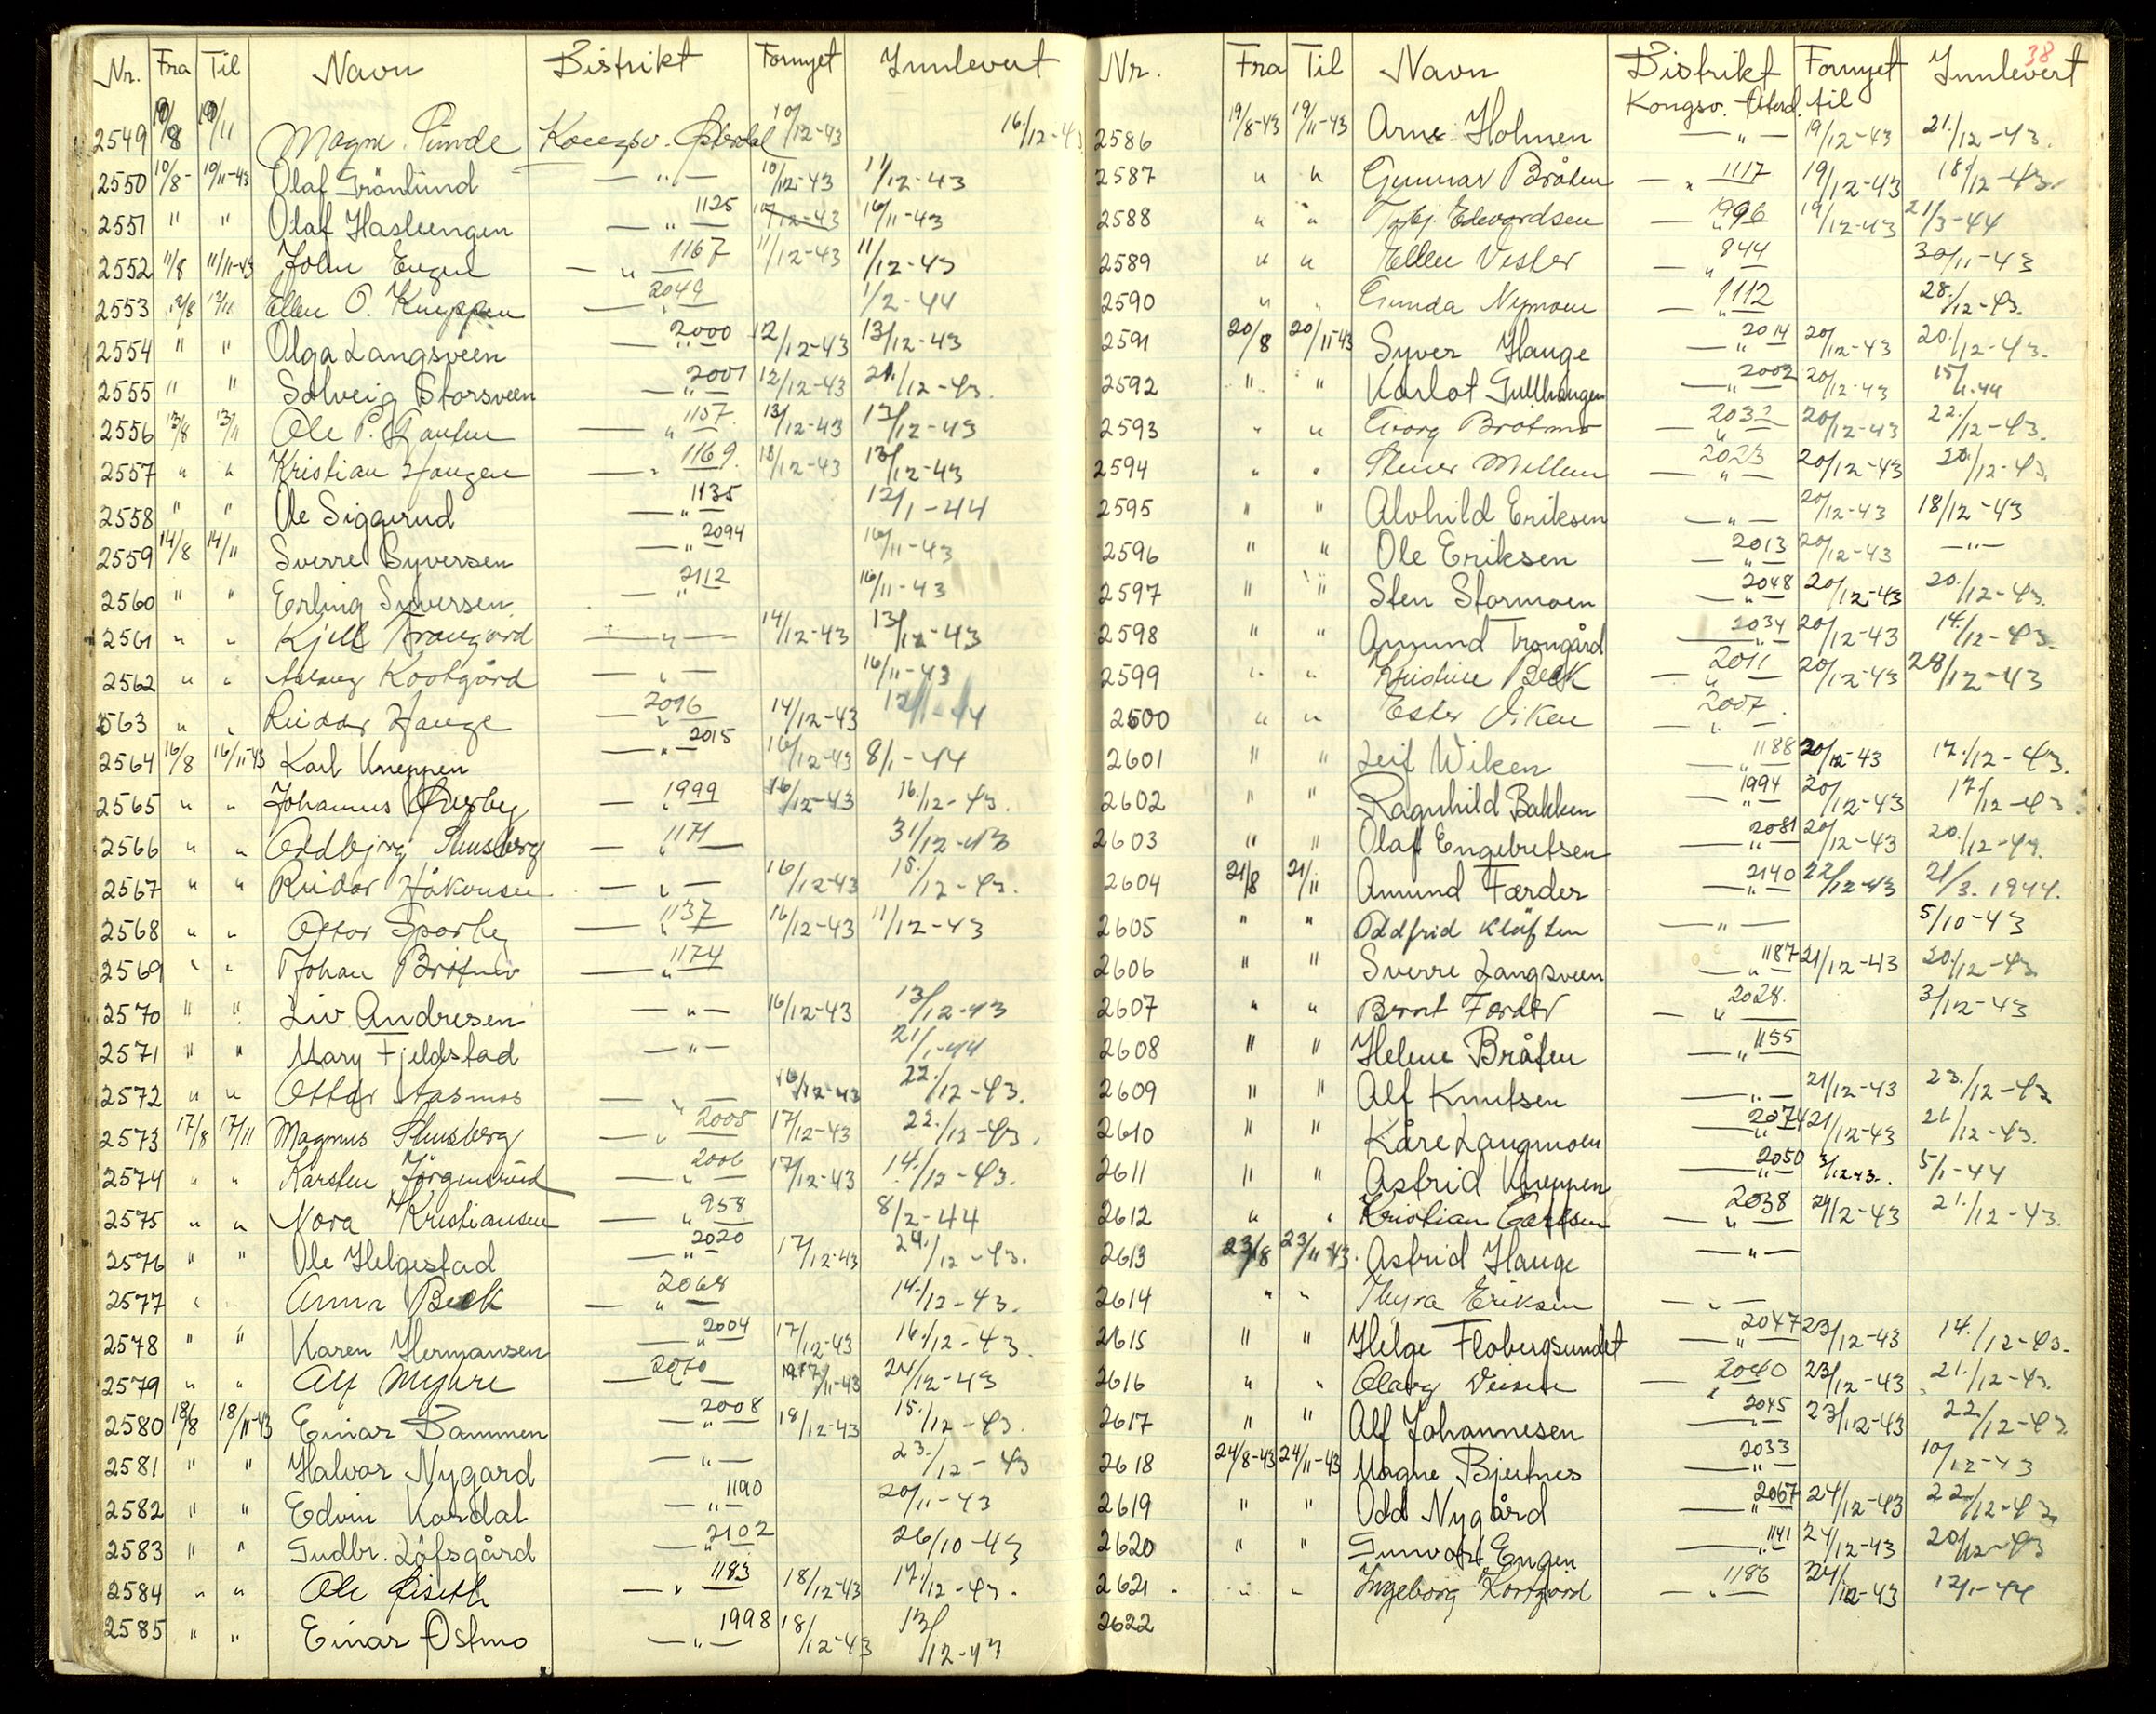 Nr. Fra Til Navn Distrikt Fornyet Innlevert
2549 19/8 19/11 Magne Kongsv. Østerdal 10/12-43 16./12-43
2550 10/8- 10/11-43 Olaf Grönlund — " — 10/12-43 11/12-43
2551 " " Olaf Hasleengen — " 1125 — 11/12-43 16/11-43
2552 11/8 11/11-43 John Engen — " 1167 — 11/12-43 11/12-43
2553 12/8 12/11 Ellen O. Kneppen — 2049 — 1/2-44
2554 " " Olga Langsveen — " 2000 — 12/12-43 13/12-43
2555 " " Solveig Storsveen — " 2001 — 12/12-43 21./12-43.
2556 13/8 13/11 Ole P. — " 1157. — 13/12-43 13/12-43
2557 " " Kristian Haugen — " 1169. — 13/12-43 13/12-43
2558 " " Ole Siggerud — " 1135 — 12/1-44
2559 14/8 14/11 Sverre Syversen — " 2094 — 16/11-43
2560 " " Erling Syversen — " 2112 — 16/11-43
2561 " " Kjell Trangård — " — 14/12-43 13/12-43
2562 " " Kortgård — " — 16/11-43
2563 " " Reidar Hauge — " 2096 — 14/12-43 12/1-44
2564 16/8 16/11-43 Karl Kneppen — " 2015 — 16/12-43 8/1-44
2565 " " Johannes — " 1999 — 16/12-43 16./12-43.
2566 " " Oddbjørg Slusberg — " 1171 — 31/12-43
2567 " " Reidar Håkonsen — " — 16/12-43 15./12-43.
2568 " " Ottar Sparby — " 1137 — 16/12-43 11/12-43
2569 " " Johan Bråtmo — " 1174 —
2570 " " Liv Andresen — " — 16/12-43 13/12-43
2571 " " Mary Fjeldstad — " — 21/1-44
2572 " " Ottar Aasmos — " — 16/12-43 22./12-43.
2573 17/8 17/11 Magnus Slusberg — " 2005 — 17/12-43 22./12-43.
2574 " " Karsten Jörgensrud — " 2006 — 17/12-43 14./12-43.
2575 " " Nora Kristiansen — " 958 — 8/2-44
2576 " " Ole Helgestad — " 2020 — 17/12-43 24./12-43.
2577 " " Anna Beck — " 2068 — 14./12-43.
2578 " " Karen Hermansen — " 2004 — 17/12-43 16./12-43.
2579 " " Alf Myhre — " 2010 — 17/11-43 24/12-43
2580 18/8 18/11-43 Einar Bammen — " 2008 — 18/12-43 15./12-43.
2581 " " Halvor Nygard — " — 23./12-43
2582 " " Edvin Kordal — " 1190 — 20/11-43
2583 " " Gudbr. Löfsgård — " 2102 — 26/10-43
2584 " " Ole — " 1183 — 18/12-43 17./12-43.
2585 " " Einar Østmo — " 1998 — 18/12-43 13/12-43
38
Nr. Fra Til Navn Distrikt Fornyet Innlevert
Kongsv.-Østerd. til
2586 19/8-43 19/11-43 Arne Holmen — " — 19/12-43 21./12-43.
2587 " " Gunnar Bråten — " 1117 — 19/12-43 18/12-43.
2588 " " Torbj. Edvardsen — " 1996 — 19/12-43 21/3-44
2589 " " Ellen Vester — " 844 — 30/11-43
2590 " " Gunda Nymoen — " 1112 — 28./12-43.
2591 20/8 20/11-43 Syver Hauge — " 2014 — 20/12-43 20./12-43.
2592 " " Karlot Gullhaugen — " 2002 — 20/12-43 15/1.44
2593 " " Georg Bråtmo — " 2032 — 20/12-43 22./12-43.
2594 " " Steiner Mellem — " 2023 — 20/12-43 20./12-43.
2595 " " Alvhild Eriksen — " — 20/12-43 18/12-43
2596 " " Ole Eriksen — " 2013 — 20/12-43 — " —
2597 " " Sten Stormoen — " 2048 — 20/12-43 20./12-43.
2598 " " Amund Trongård — " 2034 — 20/12-43 14./12-43.
2599 " " Kristine Beck — " 2011 — 20/12-43 28/12-43
2600 " " Ester Viken — " 2007. —
2601 " " Leif Wiken — " 1188 — 20/12-43 17./12-43.
2602 " " Ragnhild Bakken — " 1994 — 20/12-43 17/12-43
2603 " " Olaf Engebretsen — " 2081 — 20/12-43 20./12-43.
2604 21/8 21/11 Amund Færder — " 2140 — 22/12-43 21/3. 1944.
2605 " " Oddfrid Kläften — " — 5/10-43
2606 " " Sverre Langsveen — " 1187 — 21/12-43 20./12-43
2607 " " Bernt Færder — " 2028. — 3/12-43
2608 " " Helene Bråten — " 1155 —
2609 " " Alf Knutsen — " — 21/12-43 23./12-43
2610 " " Kåre Langmoen — " 2074 — 21/12-43 21./12-43.
2611 " " Astrid Kneppen — " 2050 — 3/12 43. 5/1-44
2612 " " Kristian Carlsen — " 2038 — 21/12-43 21./12-43.
2613 23/8 23/11-43. Astrid Hauge — " —
2614 " " Thyra Eriksen — " —
2615 " " Helge Flobergsundet — " 2047 — 23/12-43 14./12-43.
2616 " " Olaug — " 2040 — 23/12-43 21./12-43.
2617 " " Alf Johannesen — " 2045 — 23/12-43 22/12-43
2618 24/8-43 24/11-43 Magne Bjertnes — " 2033 — 10/12-43
2619 " " Odd Nygård — " 2067 — 24/12-43 22/12-43
2620 " " Gunvart Engen — " 1141 — 24/12-43 20/12-43
2621. " " Ingeborg Kortgård — " 1186 — 24/12-43 12/1-44
2622